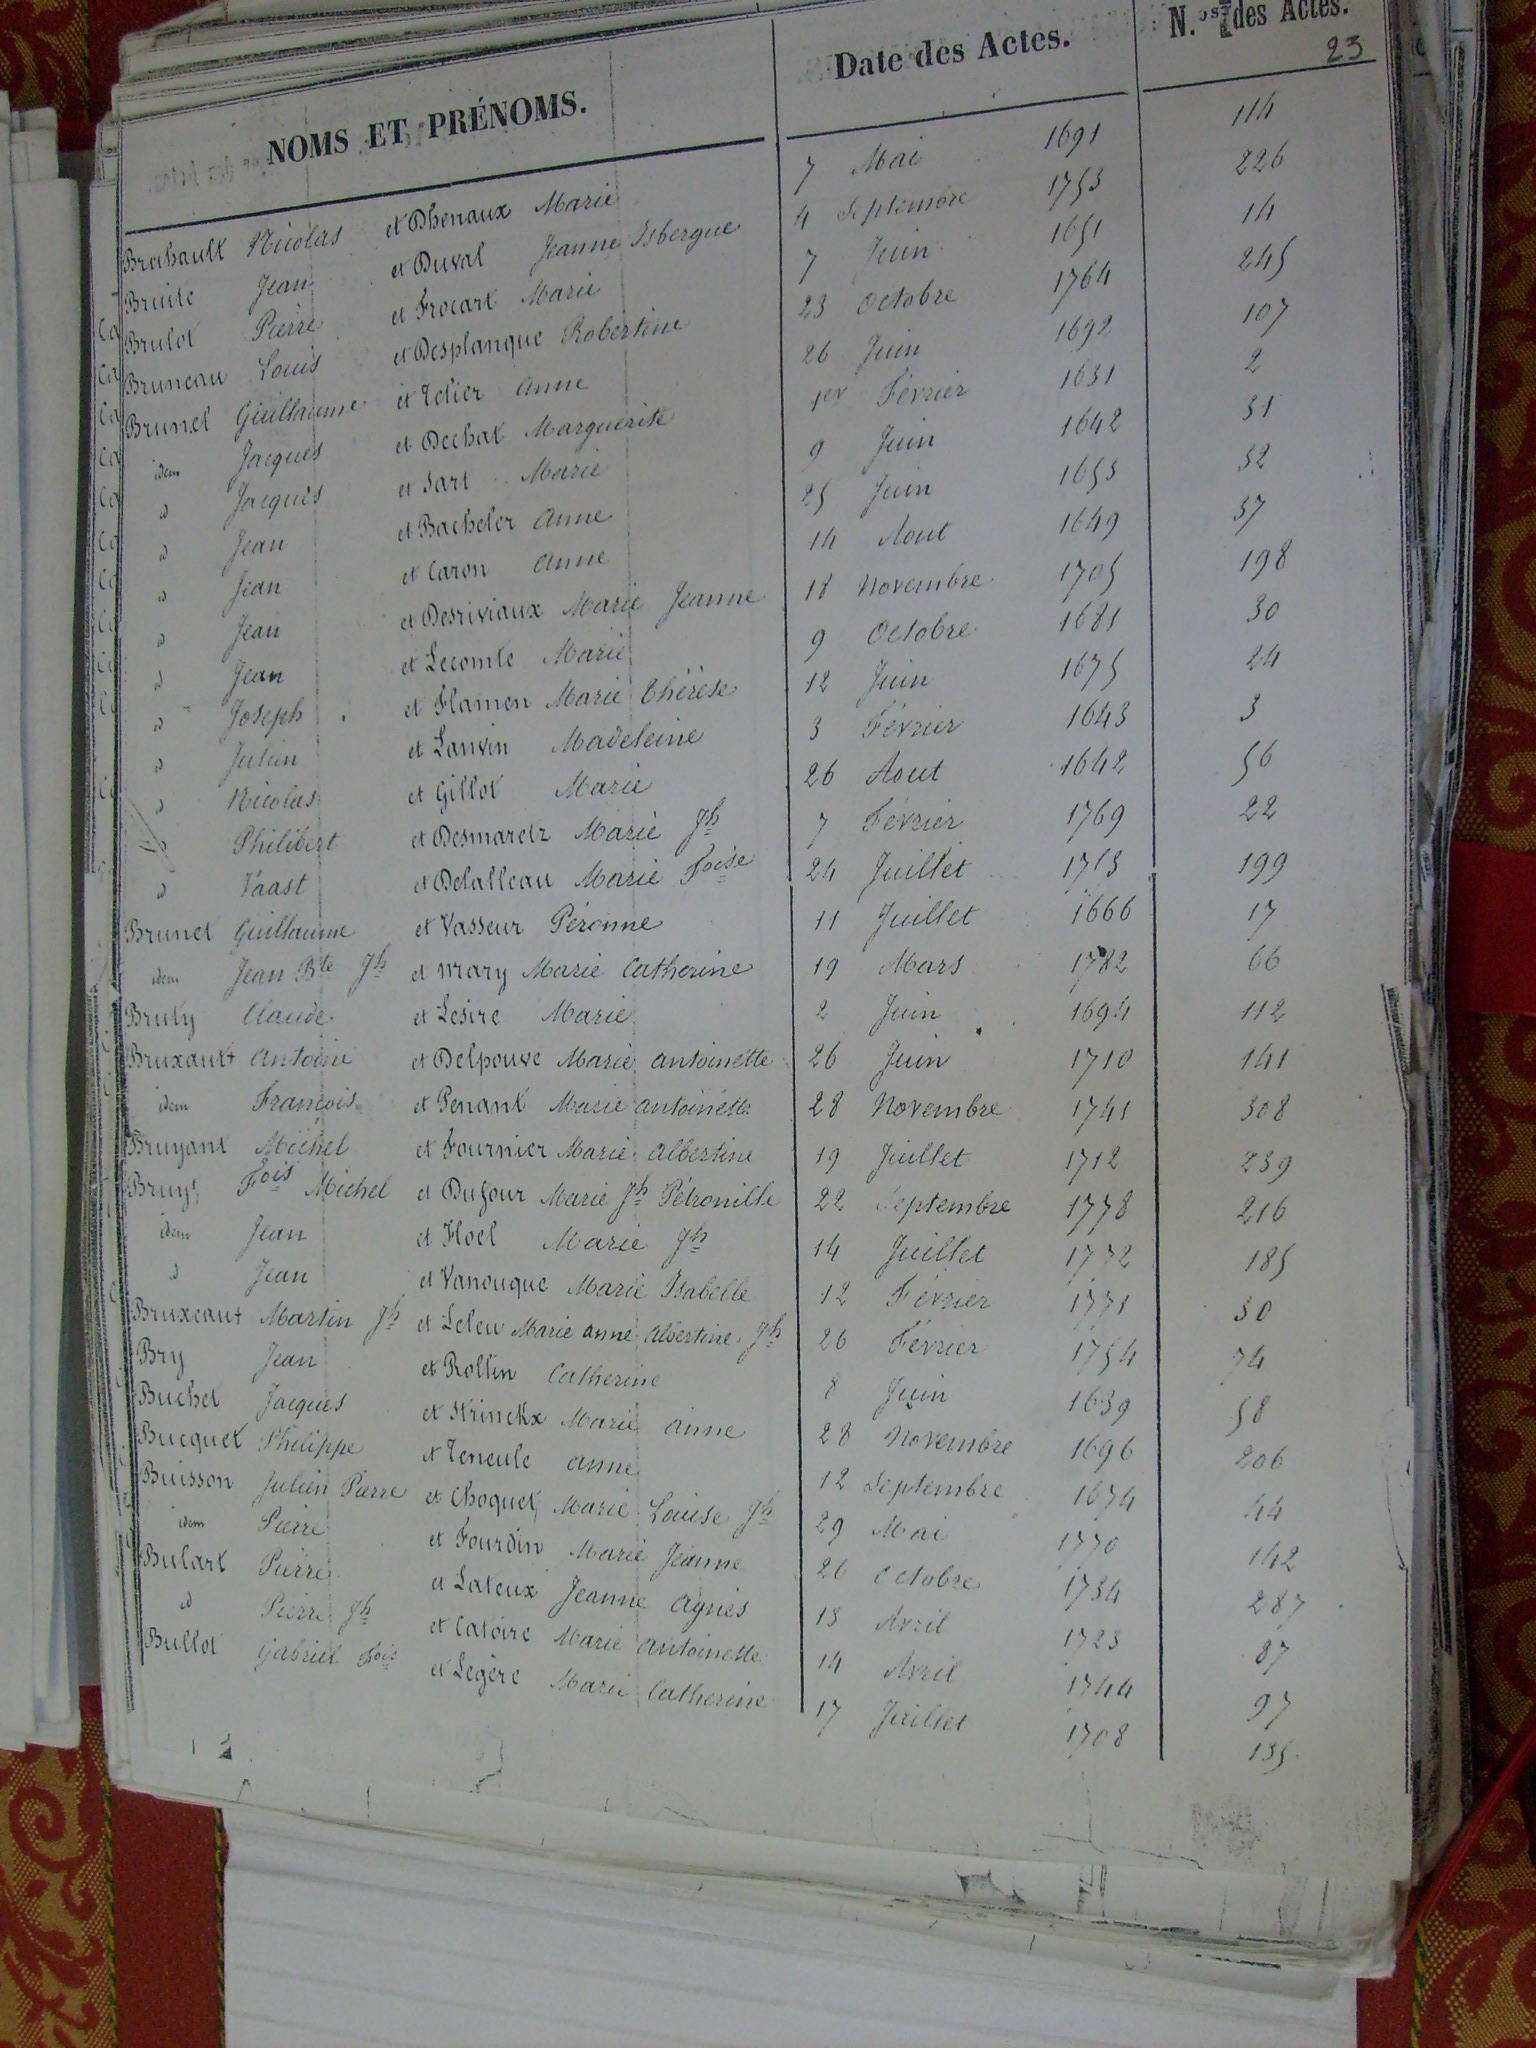 NOMS ET PRÉNOMS. Date des Actes. N.os des Actes.
23
Brahault Nicolas et Dhenaux Marie 7 Mai 1691 114
Bruile Jean et Duval Jeanne Isbergue 4 Septembre 1753 226
Brulot Pierre et Frocart Marie 7 Juin 1651 14
Bruneau Louis et Desplanque Robertine 23 Octobre 1764 245
Brunel Guillaume et Telier Anne 26 Juin 1692 107
idem Jacques et Dechat Marguerite 1er Février 1631 2
d Jacques et Sart Marie 9 Juin 1642 31
d Jean et Bacheler Anne 25 Juin 1653 32
d Jean et Caron Anne 14 Aout 1649 37
d Jean et Desriviaux Marie Jeanne 18 Novembre 1705 198
d Jean et Lecomte Marie 9 Octobre 1681 30
d Joseph et Flamen Marie Thérèse 12 Juin 1675 24
d Julien et Lanvin Madeleine 3 Février 1643 3
d Nicolas et Gillot Marie 26 Aout 1642 56
d Philibert et Desmaretz Marie Jh 7 Février 1769 22
d Vaast et Delalleau Marie Foise 24 Juillet 1713 199
Brunet Guillaume et Vasseur Péronne 11 Juillet 1666 17
idem Jean Bte Jh et Mary Marie Catherine 19 Mars 1782 66
Bruly Claude et Lesire Marie 2 Juin 1694 112
Bruxault Antoine et Delpouve Marie Antoinette 26 Juin 1710 141
idem François et Penant Marie Antoinette 28 Novembre 1741 308
Bruyant Michel et Fournier Marie Albertine 19 Juillet 1712 239
Bruys Fois Michel et Dufour Marie Jh Pétronille 22 Septembre 1778 216
idem Jean et Floel Marie Jh 14 Juillet 1732 185
d Jean et Vanouque Marie Isabelle 12 Février 1771 30
Bruxeaut Martin Jh et Leleu Marie Anne Albertine Jh 26 Février 1754 74
Bry Jean et Rollin Catherine 8 Juin 1639 58
Buchet Jacques et Strinckx Marie Anne 28 Novembre 1696 206
Bucquet Philippe et Teneule Anne 12 Septembre 1674 44
Buisson Julien Pierre et Choquet Marie Louise Jh 29 Mai 1770 142
idem Pierre et Fourdin Marie Jeanne 26 Octobre 1734 287
Bulart Pierre et Lateux Jeanne Agnès 13 Avril 1723 87
d Pierre Jh et Catoire Marie Antoinette 14 Avril 1744 97
Bullot Gabriel Fois et Legère Marie Catherine 17 Juillet 1708 135